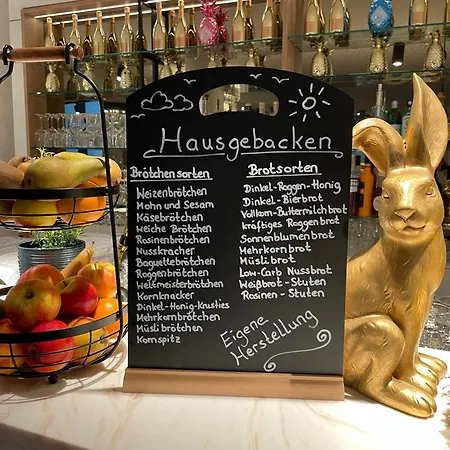 Hausgebacken
Brötchensorten
Weizenbrötchen
Mohn und Sesam
Käsebrötchen
weiche Brötchen
Rosinenbrötchen
Nusskracher
Baguettebrötchen
Roggenbrötchen
Weltmeisterbrötchen
Kornknacker
Dinkel-Honig-Krusties
Mehrkornbrötchen
Müslibrötchen
Kornspitz
Brotsorten
Dinkel-Roggen-Honig
Dinkel-Bierbrot
Vollkorn-Buttermilchbrot
kräftiges Roggenbrot
Sonnenblumenbrot
Mehrkornbrot
Müslibrot
Low-Carb Nussbrot
Weißbrot-Stuten
Rosinen-Stuten
Eigene
Herstellung